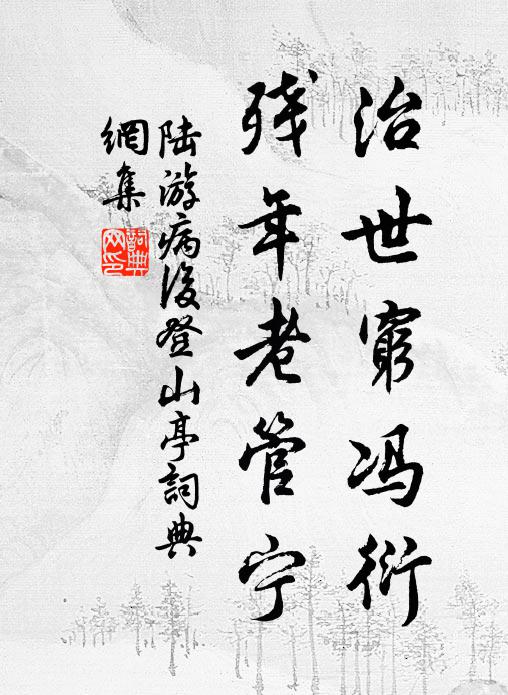 治世穷冯衍
残年老管宁
陆游病後登山亭詞典
網集
詞典网印